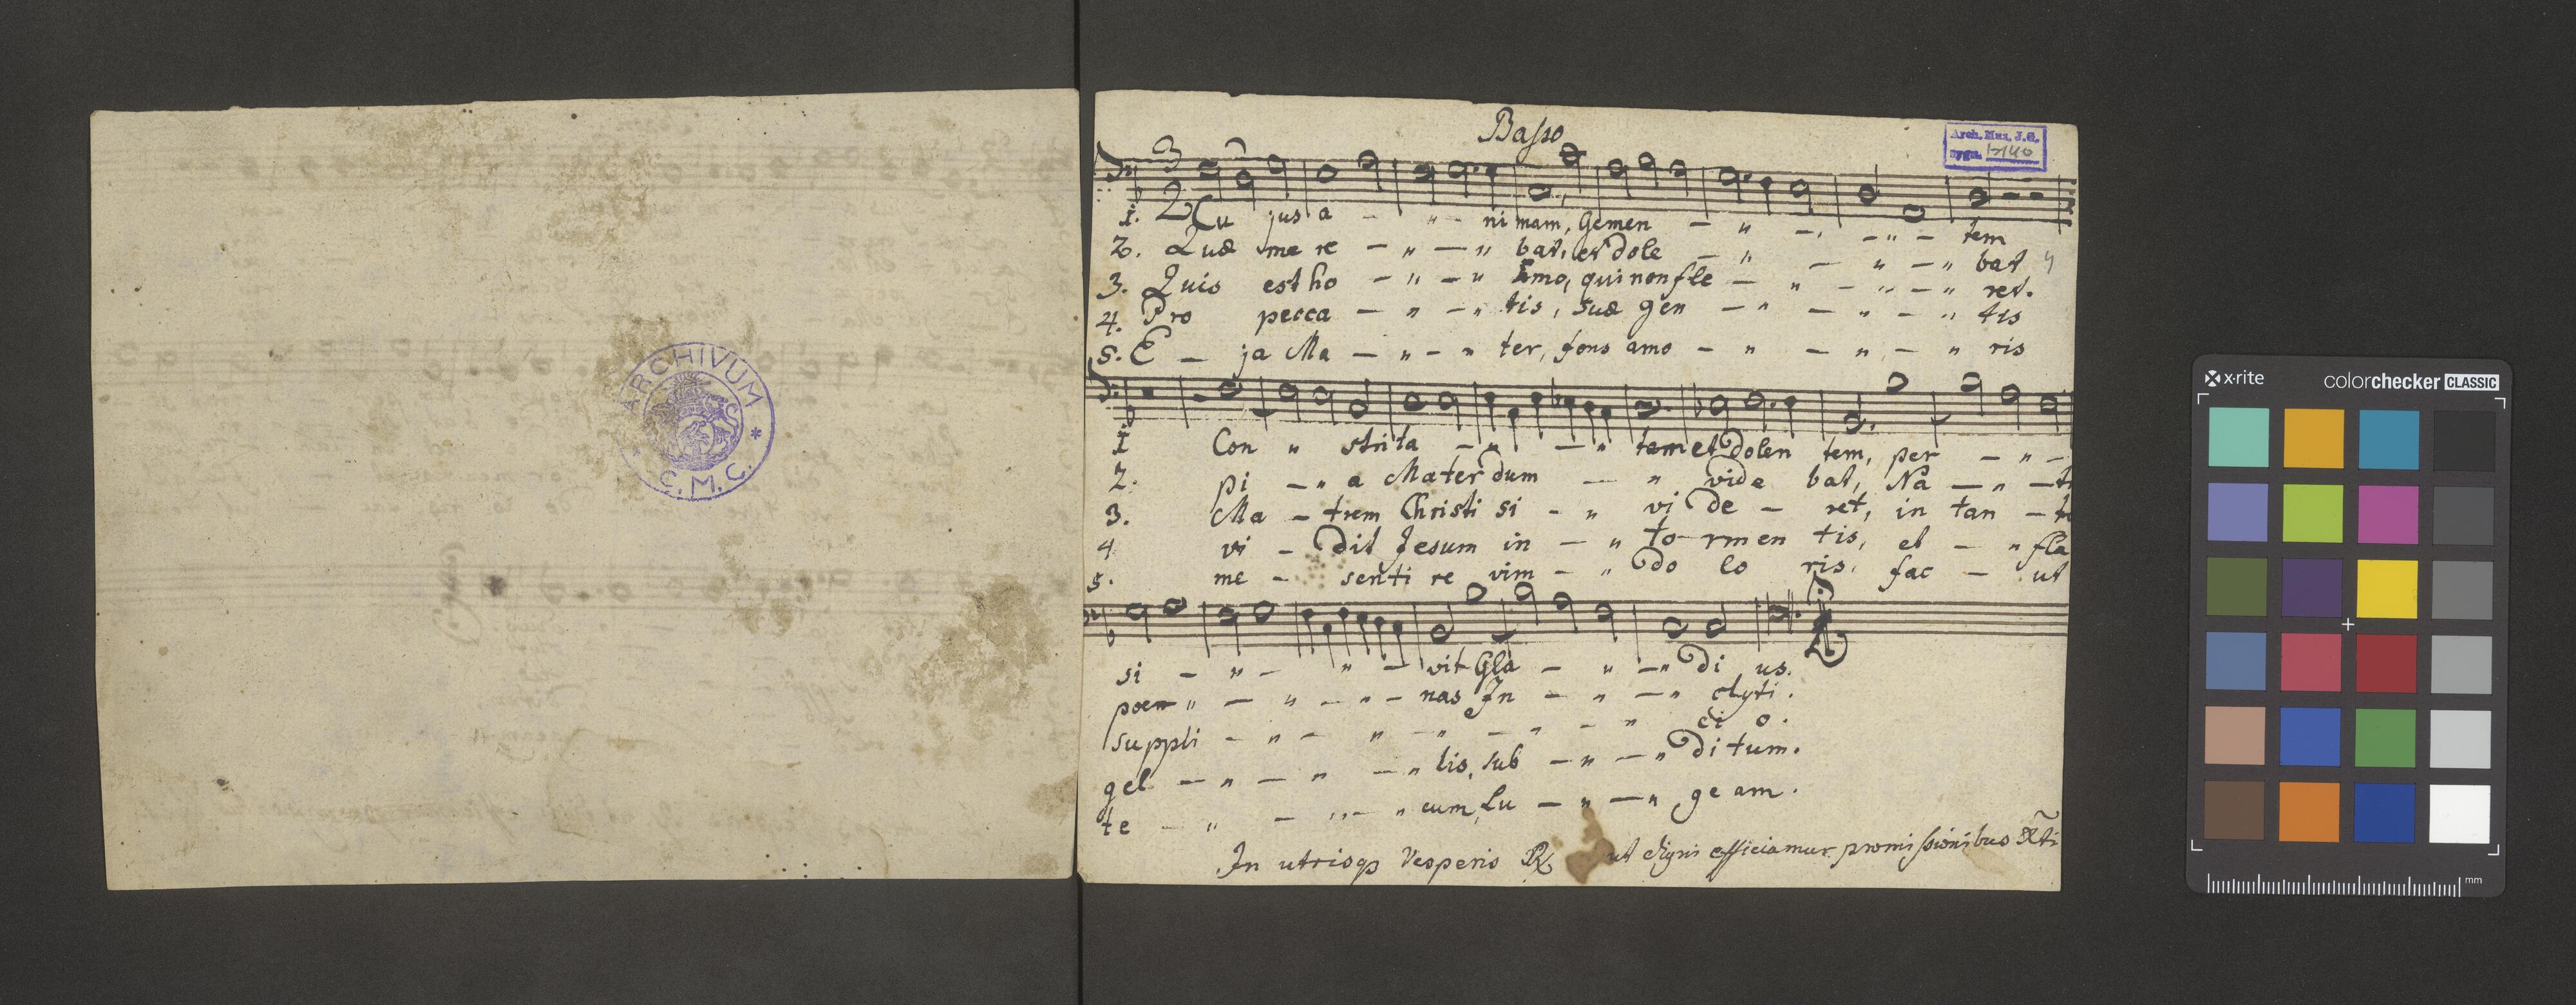 ARCHIVUM
C. M. C.
Basso
Arch. Muz. J. G.
sygn. I-140
3
2
1. Cu jus a - " - ni mam, Gemen - " - " - " - tem
2. Quæ me re - " - " bat, et dole - " - " - " bat 4
3. Quis est ho - " - " mo, qui non fle - " - " - " ret.
4. Pro pecca - " - " tis, suæ gen - " - " - " tis
5. E - ja Ma - " - " ter, fons amo - " - " - " ris
1 Con " strita - " - " tam et dolen tem, per - " -
2. pi - " a Mater dum - " vide bat, Na - " - ti
3. Ma - trem Christi si - " vi de - ret, in tan - to
4 vi - dit Jesum in - " to - rmen tis, et - " fla
5. me - senti re vim - " do lo ris, fac - ut
si - " - " - vit Gla - " - " di us.
poen " - " - " - nas In - " - " clyti.
suppli - " - " - " - " - " ci o.
gel - " - " - " lis, sub - " - " ditum.
te - " - " - " cum, Lu - " - " ge am.
In utrisq Vesperis R ut digni efficiamur promissionibus Xti
x-rite
colorchecker CLASSIC
mm